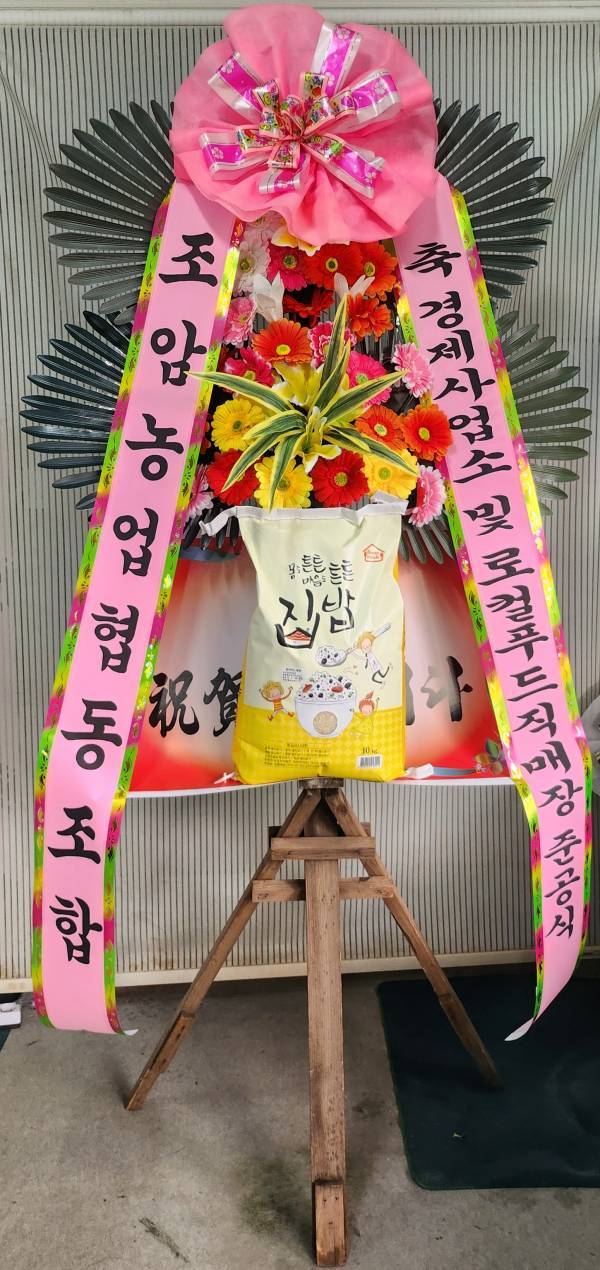 조암농업협동조합
축 경제사업소 및 로컬푸드직매장 준공식
몸은 튼튼
마음은 튼튼
집밥
祝賀
다
10kg